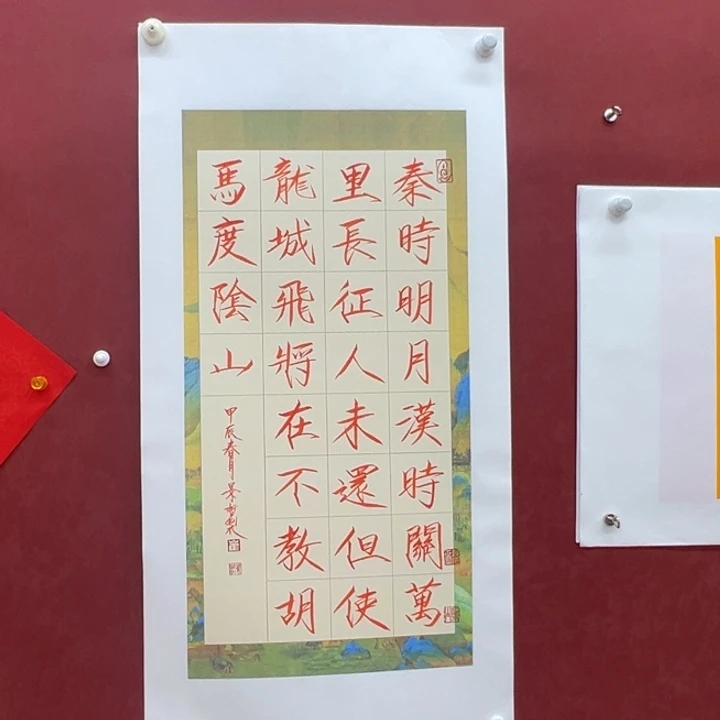 秦時明月漢時關萬
里長征人未還但使
龍城飛將在不教胡
馬度陰山
甲辰春月